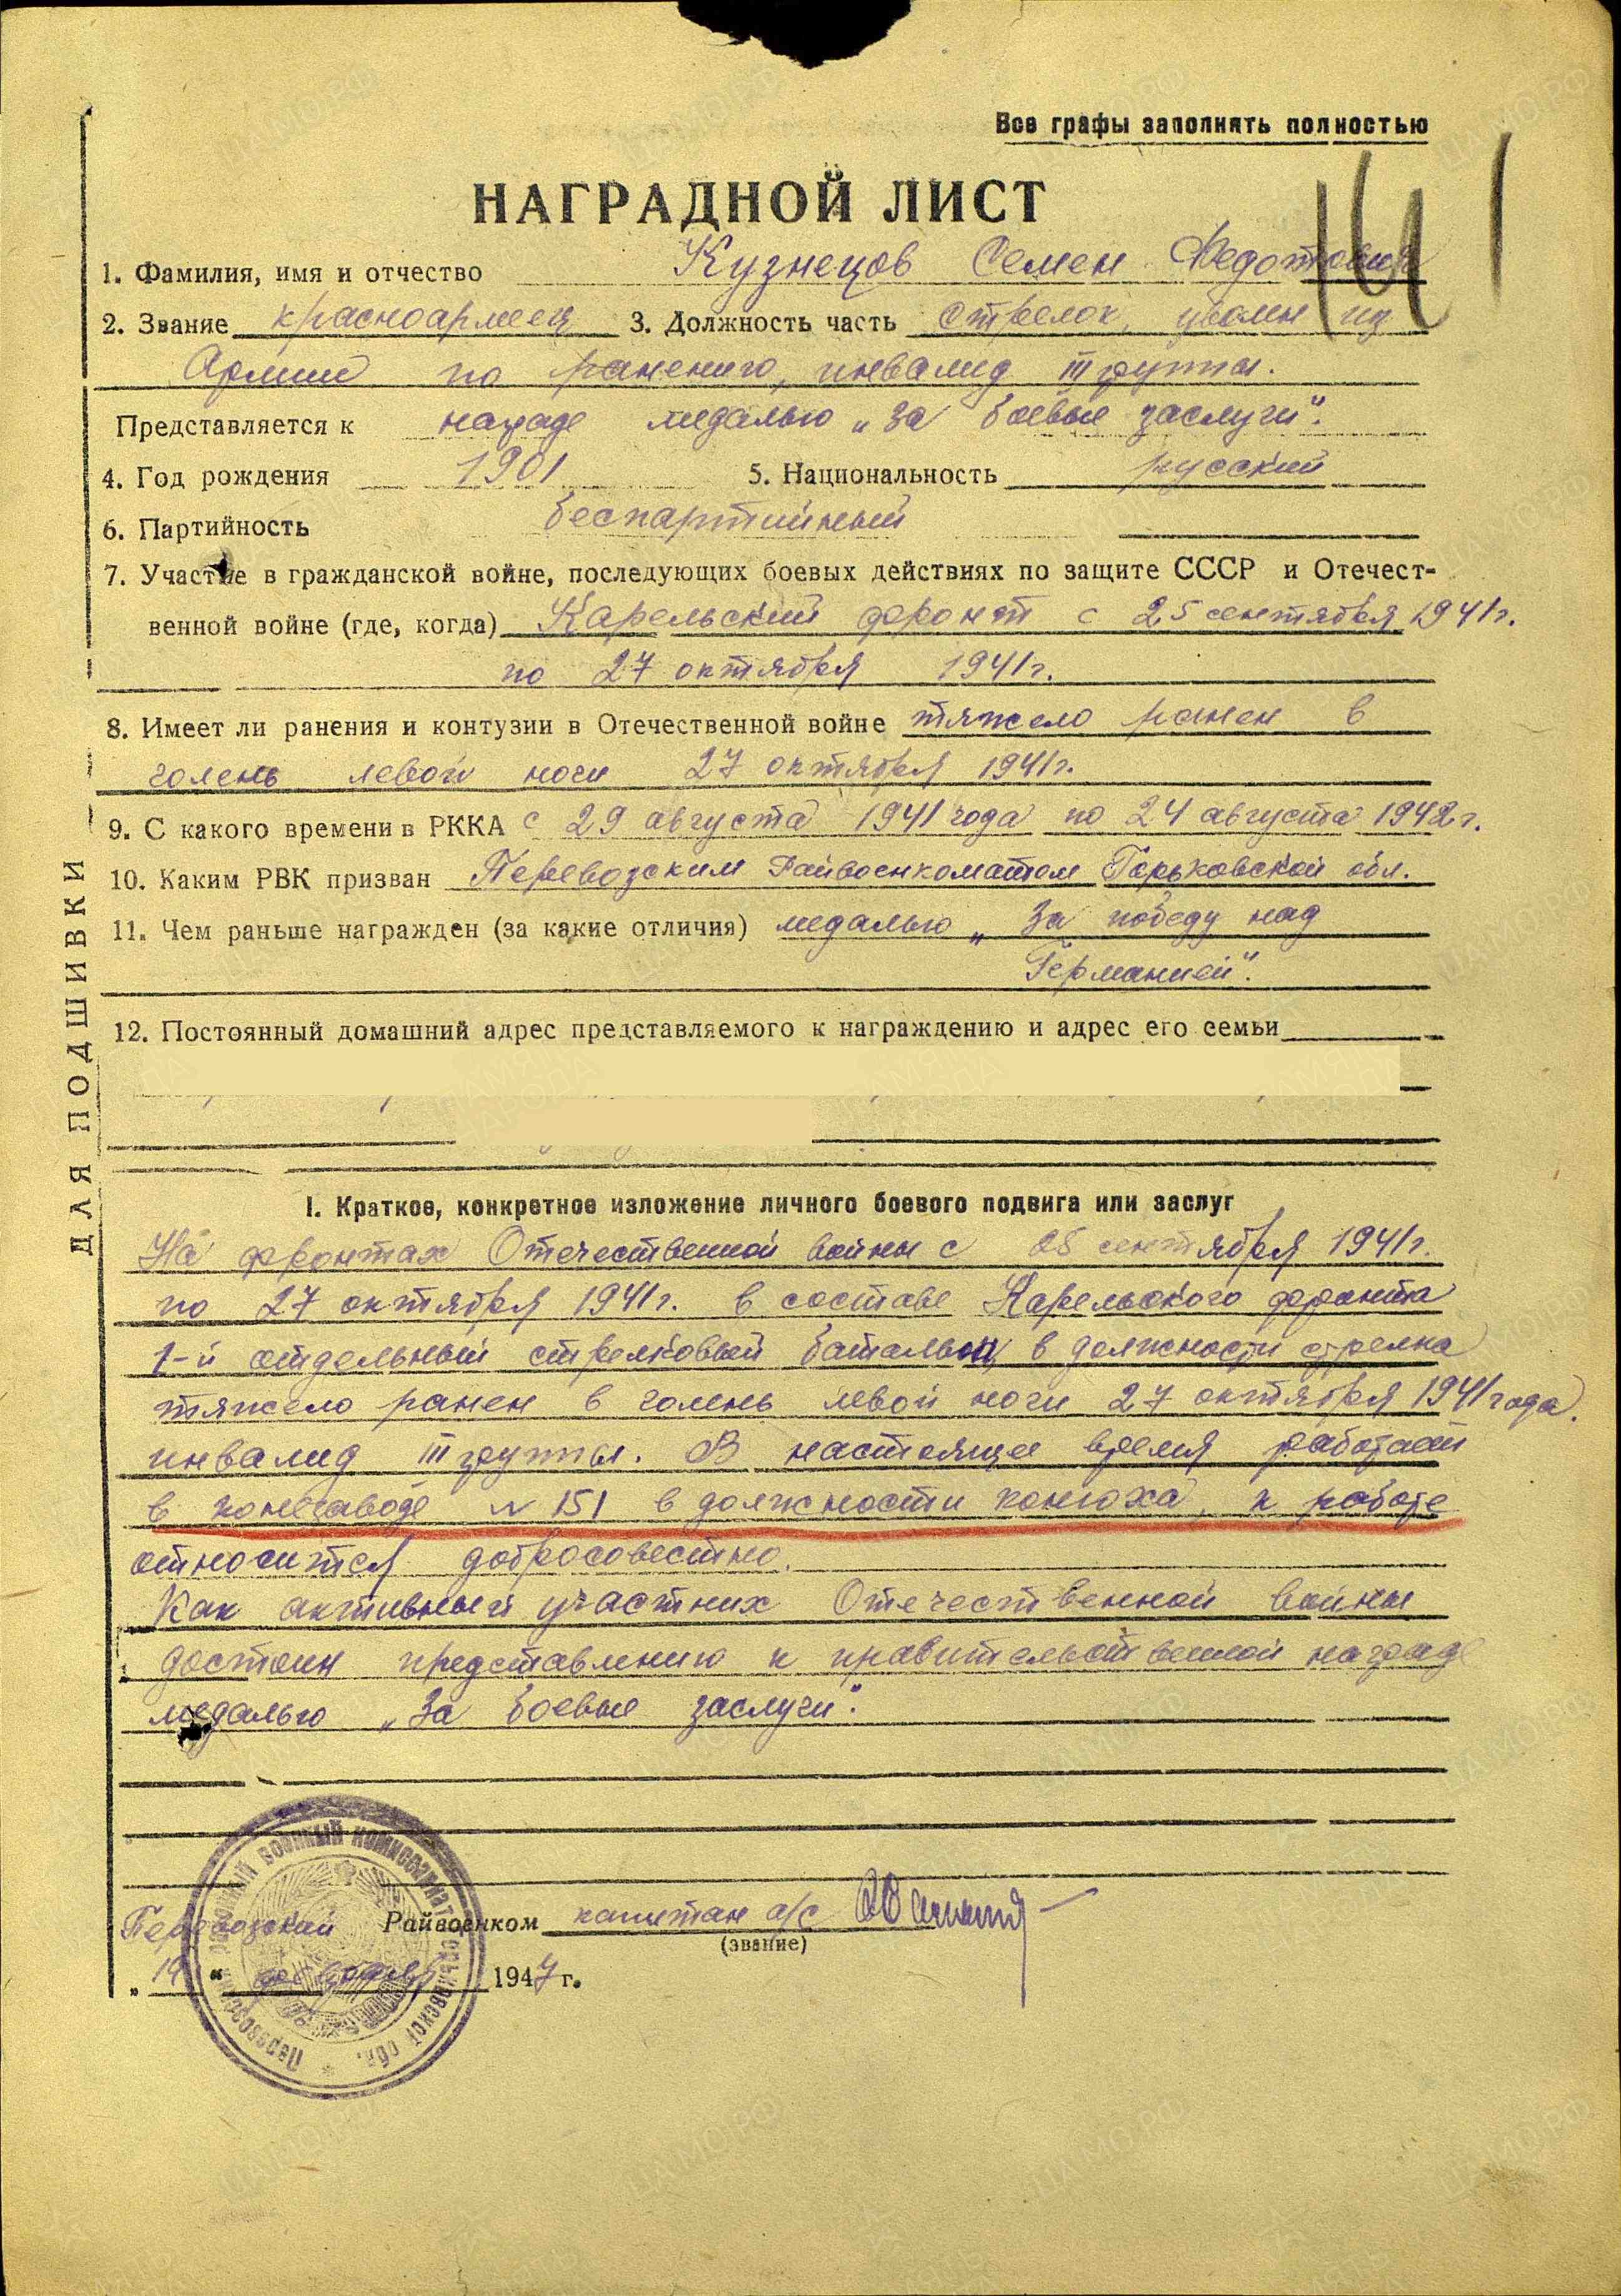 Все графы заполнять полностью
141
НАГРАДНОЙ ЛИСТ
1. Фамилия, имя и отчество Кузнецов Семен Федотович
2. Звание красноармеец 3. Должность часть Стрелок, уволен из
Армии по ранению, инвалид III группы.
Представляется к награде медалью „За боевые заслуги".
4. Год рождения 1901 5. Национальность русский
6. Партийность беспартийный
7. Участие в гражданской войне, последующих боевых действиях по защите СССР и Отечест-
венной войне (где, когда) Карельский фронт с 25 сентября 1941г.
по 27 октября 1941г.
8. Имеет ли ранения и контузии в Отечественной войне тяжело ранен в
голень левой ноги 27 октября 1941г.
9. С какого времени в РККА с 29 августа 1941 года по 24 августа 1942г.
10. Каким РВК призван Перевозским Райвоенкоматом Горьковской обл.
11. Чем раньше награжден (за какие отличия) медалью „За победу над
Германией".
12. Постоянный домашний адрес представляемого к награждению и адрес его семьи
ДЛЯ ПОДШИВКИ
I. Краткое, конкретное изложение личного боевого подвига или заслуг
На фронтах Отечественной войны с 25 сентября 1941г.
по 27 октября 1941г. в составе Карельского фронта
1-й отдельный стрелковый батальон, в должности стрелка
тяжело ранен в голень левой ноги 27 октября 1941 года.
инвалид III группы. В настоящее время работает
в конезаводе № 151 в должности конюха, к работе
относится добросовестно.
Как активный участник Отечественной войны
достоин представлению к правительственной награде
медалью „За боевые заслуги".
Перевозский Райвоенком капитан а/с
(звание)
„19" 1947 г.
военный комиссариат Горьковской обл.